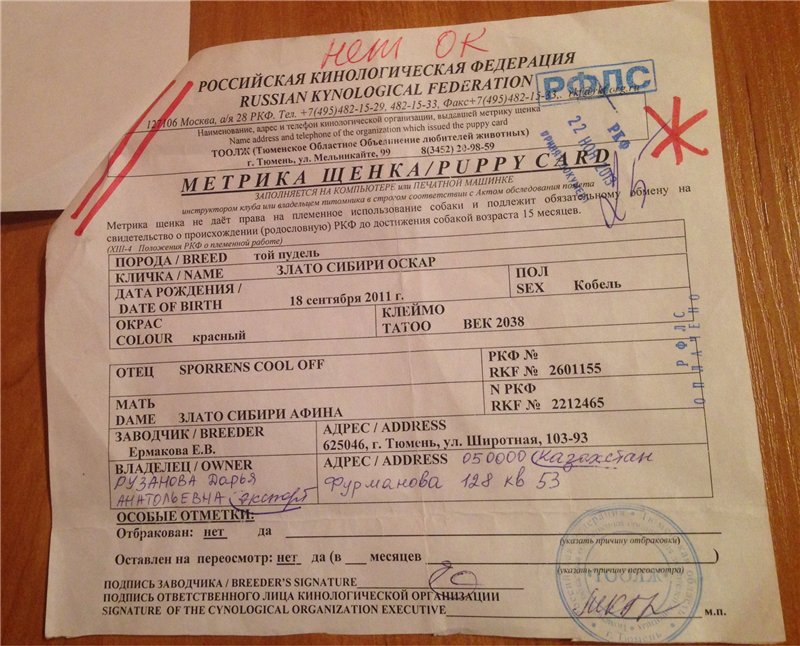 нет ОК
РОССИЙСКАЯ КИНОЛОГИЧЕСКАЯ ФЕДЕРАЦИЯ
RUSSIAN KYNOLOGICAL FEDERATION
РФЛС
127106 Москва, а/я 28 РКФ. Тел. +7(495)482-15-29, 482-15-33, Факс+7(495)482-15-33, rkf@rkf.org.ru
Наименование, адрес и телефон кинологической организации, выдавшей метрику щенка
Name address and telephone of the organization which issued the puppy card
ТООЛЖ (Тюменское Областное Объединение любителей животных)
г. Тюмень, ул. Мельникайте, 99 8(3452) 20-98-59
РКФ
22 НОЯ 2013
Ж
МЕТРИКА ЩЕНКА/PUPPY CARD
ЗАПОЛНЯЕТСЯ НА КОМПЬЮТЕРЕ или ПЕЧАТНОЙ МАШИНКЕ
инструктором клуба или владельцем питомника в строгом соответствии с Актом обследования помета
Метрика щенка не даёт права на племенное использование собаки и подлежит обязательному обмену на
свидетельство о происхождении (родословную) РКФ до достижения собакой возраста 15 месяцев.
(XIII-4 Положения РКФ о племенной работе)
ПОРОДА / BREED той пудель
КЛИЧКА / NAME ЗЛАТО СИБИРИ ОСКАР
ДАТА РОЖДЕНИЯ /
DATE OF BIRTH 18 сентября 2011 г.
ПОЛ
SEX Кобель
ОКРАС
COLOUR красный
КЛЕЙМО
TATOO ВЕК 2038
РФЛС
ОПЛАЧЕНО
ОТЕЦ SPORRENS COOL OFF
РКФ №
RKF № 2601155
МАТЬ
DAME ЗЛАТО СИБИРИ АФИНА
N РКФ
RKF № 2212465
ЗАВОДЧИК / BREEDER
Ермакова Е.В.
АДРЕС / ADDRESS
625046, г. Тюмень, ул. Широтная, 103-93
ВЛАДЕЛЕЦ / OWNER
РУЗАНОВА Дарья
АНАТОЛЬЕВНА экспорт
АДРЕС / ADDRESS 050000 Казахстан
Фурманова 128 кв 53
ОСОБЫЕ ОТМЕТКИ:
Отбракован: нет да
(указать причину отбраковки)
Оставлен на пересмотр: нет да (в месяцев )
(указать причину пересмотра)
ПОДПИСЬ ЗАВОДЧИКА / BREEDER'S SIGNATURE
ПОДПИСЬ ОТВЕТСТВЕННОГО ЛИЦА КИНОЛОГИЧЕСКОЙ ОРГАНИЗАЦИИ
SIGNATURE OF THE CYNOLOGICAL ORGANIZATION EXECUTIVE м.п.
ТООЛЖ
г. Тюмень